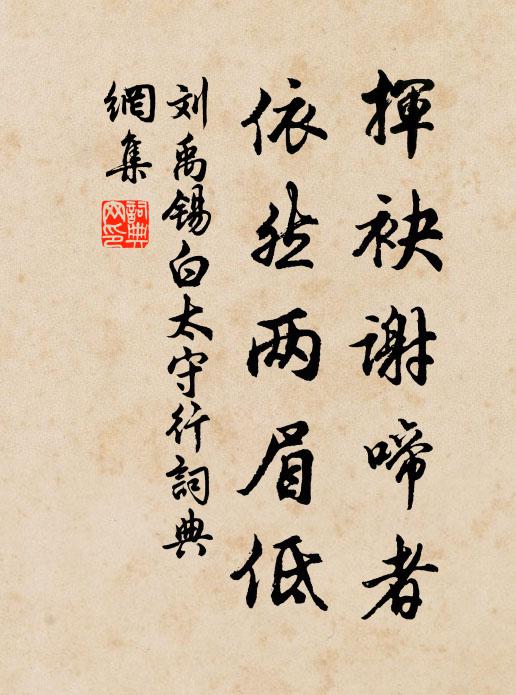 揮袂謝啼者
依然两眉低
刘禹锡白太守行詞典
網集
詞典网印